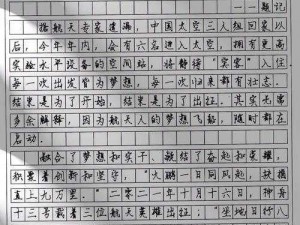 ——题记
据航天专家透漏，中国太空三人组回家以
后，今年年内，会有六名进入太空，拥有更高
实验水平设备的空间站，将静待“宾客”入住。
每一次出发皆为梦想，每一次归来都有壮志。
结束是为了开始，结束是为了出征。其实无需
多余解释，因为航天人的梦想飞船，随时都在
启动。
融合了梦想和实干、凝结了奋起和荣耀，
积蓄着创新和坚守；“大鹏一日同风起，扶摇
直上九万里。”二零二一年十月十六日，神舟
十三号载着三位航天英雄出征；“坐地日行八